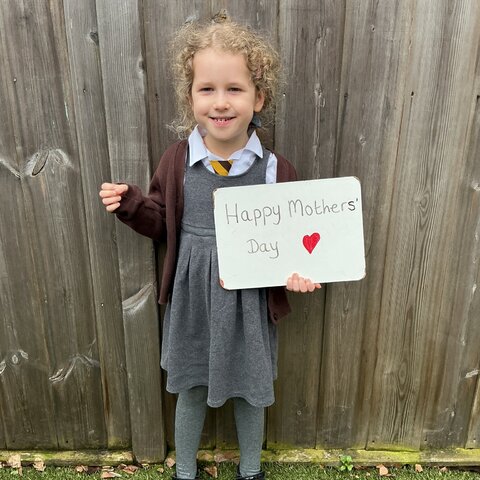 Happy Mothers'
Day